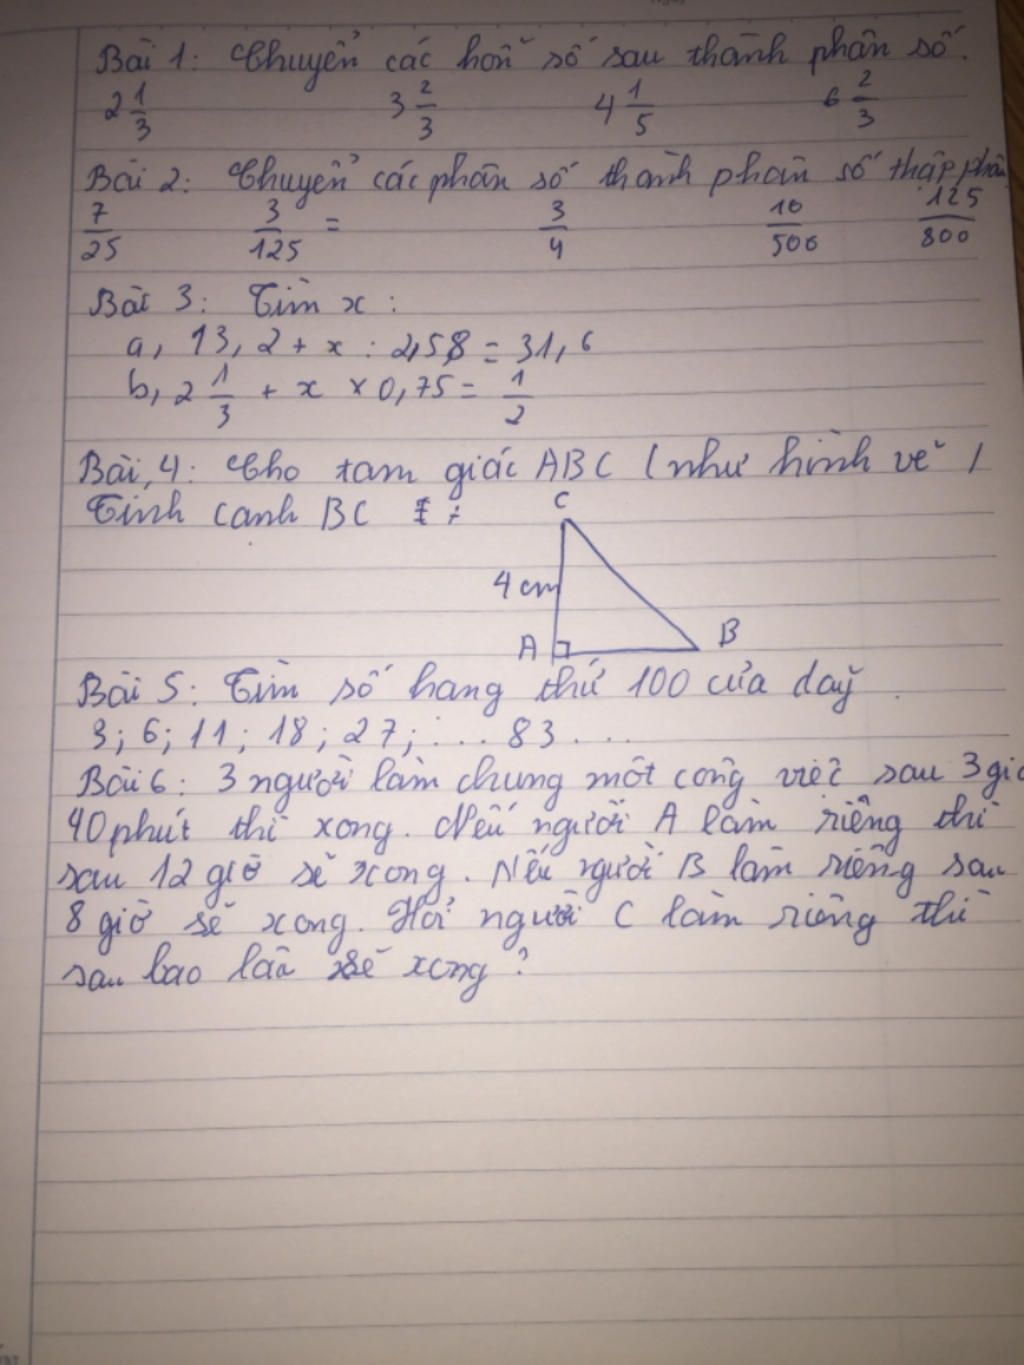 Bài 1: Chuyển các hỗn số sau thành phân số.
2 1/3 3 2/3 4 1/5 6 2/3
Bài 2: Chuyển các phân số thành phân số thập phân
7/25 3/125 = 3/4 10/500 125/800
Bài 3: Tìm x:
a, 13,2 + x : 2,58 = 31,6
b, 2 1/3 + x × 0,75 = 1/2
Bài 4: Cho tam giác ABC (như hình vẽ)
Tính cạnh BC :
C
4 cm
A B
Bài 5: Tìm số hạng thứ 100 của dãy
3; 6; 11; 18; 27; ... 83 ...
Bài 6: 3 người làm chung một công việc sau 3 giờ
40 phút thì xong. Nếu người A làm riêng thì
sau 12 giờ sẽ xong. Nếu người B làm riêng sau
8 giờ sẽ xong. Hỏi người C làm riêng thì
sau bao lâu sẽ xong?